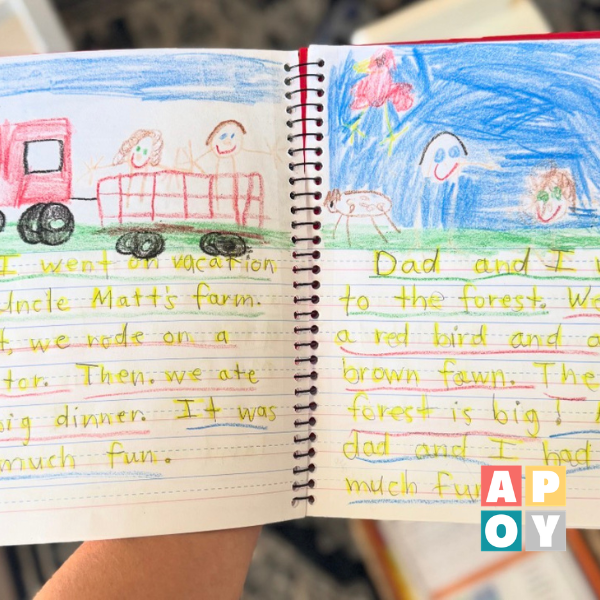 I went on vacation
Uncle Matt's farm.
we rode on a
Then. we ate
big dinner. It was
much fun.
Dad and I
to the forest. We
a red bird and a
brown fawn. The
forest is big!
dad and I had
much fun
AP
OY